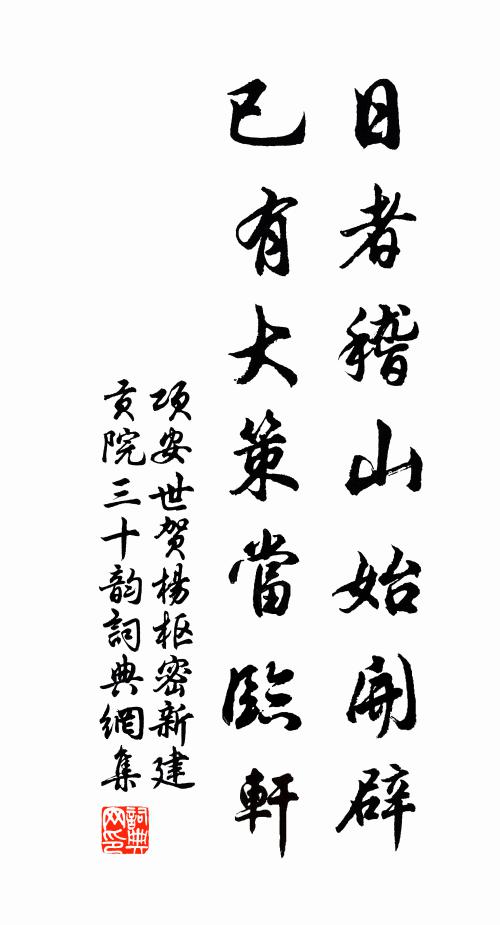 日者稽山始開辟
已有大策當臨軒
項安世贺楊枢密新建
贡院三十韵詞典網集
詞典
网印